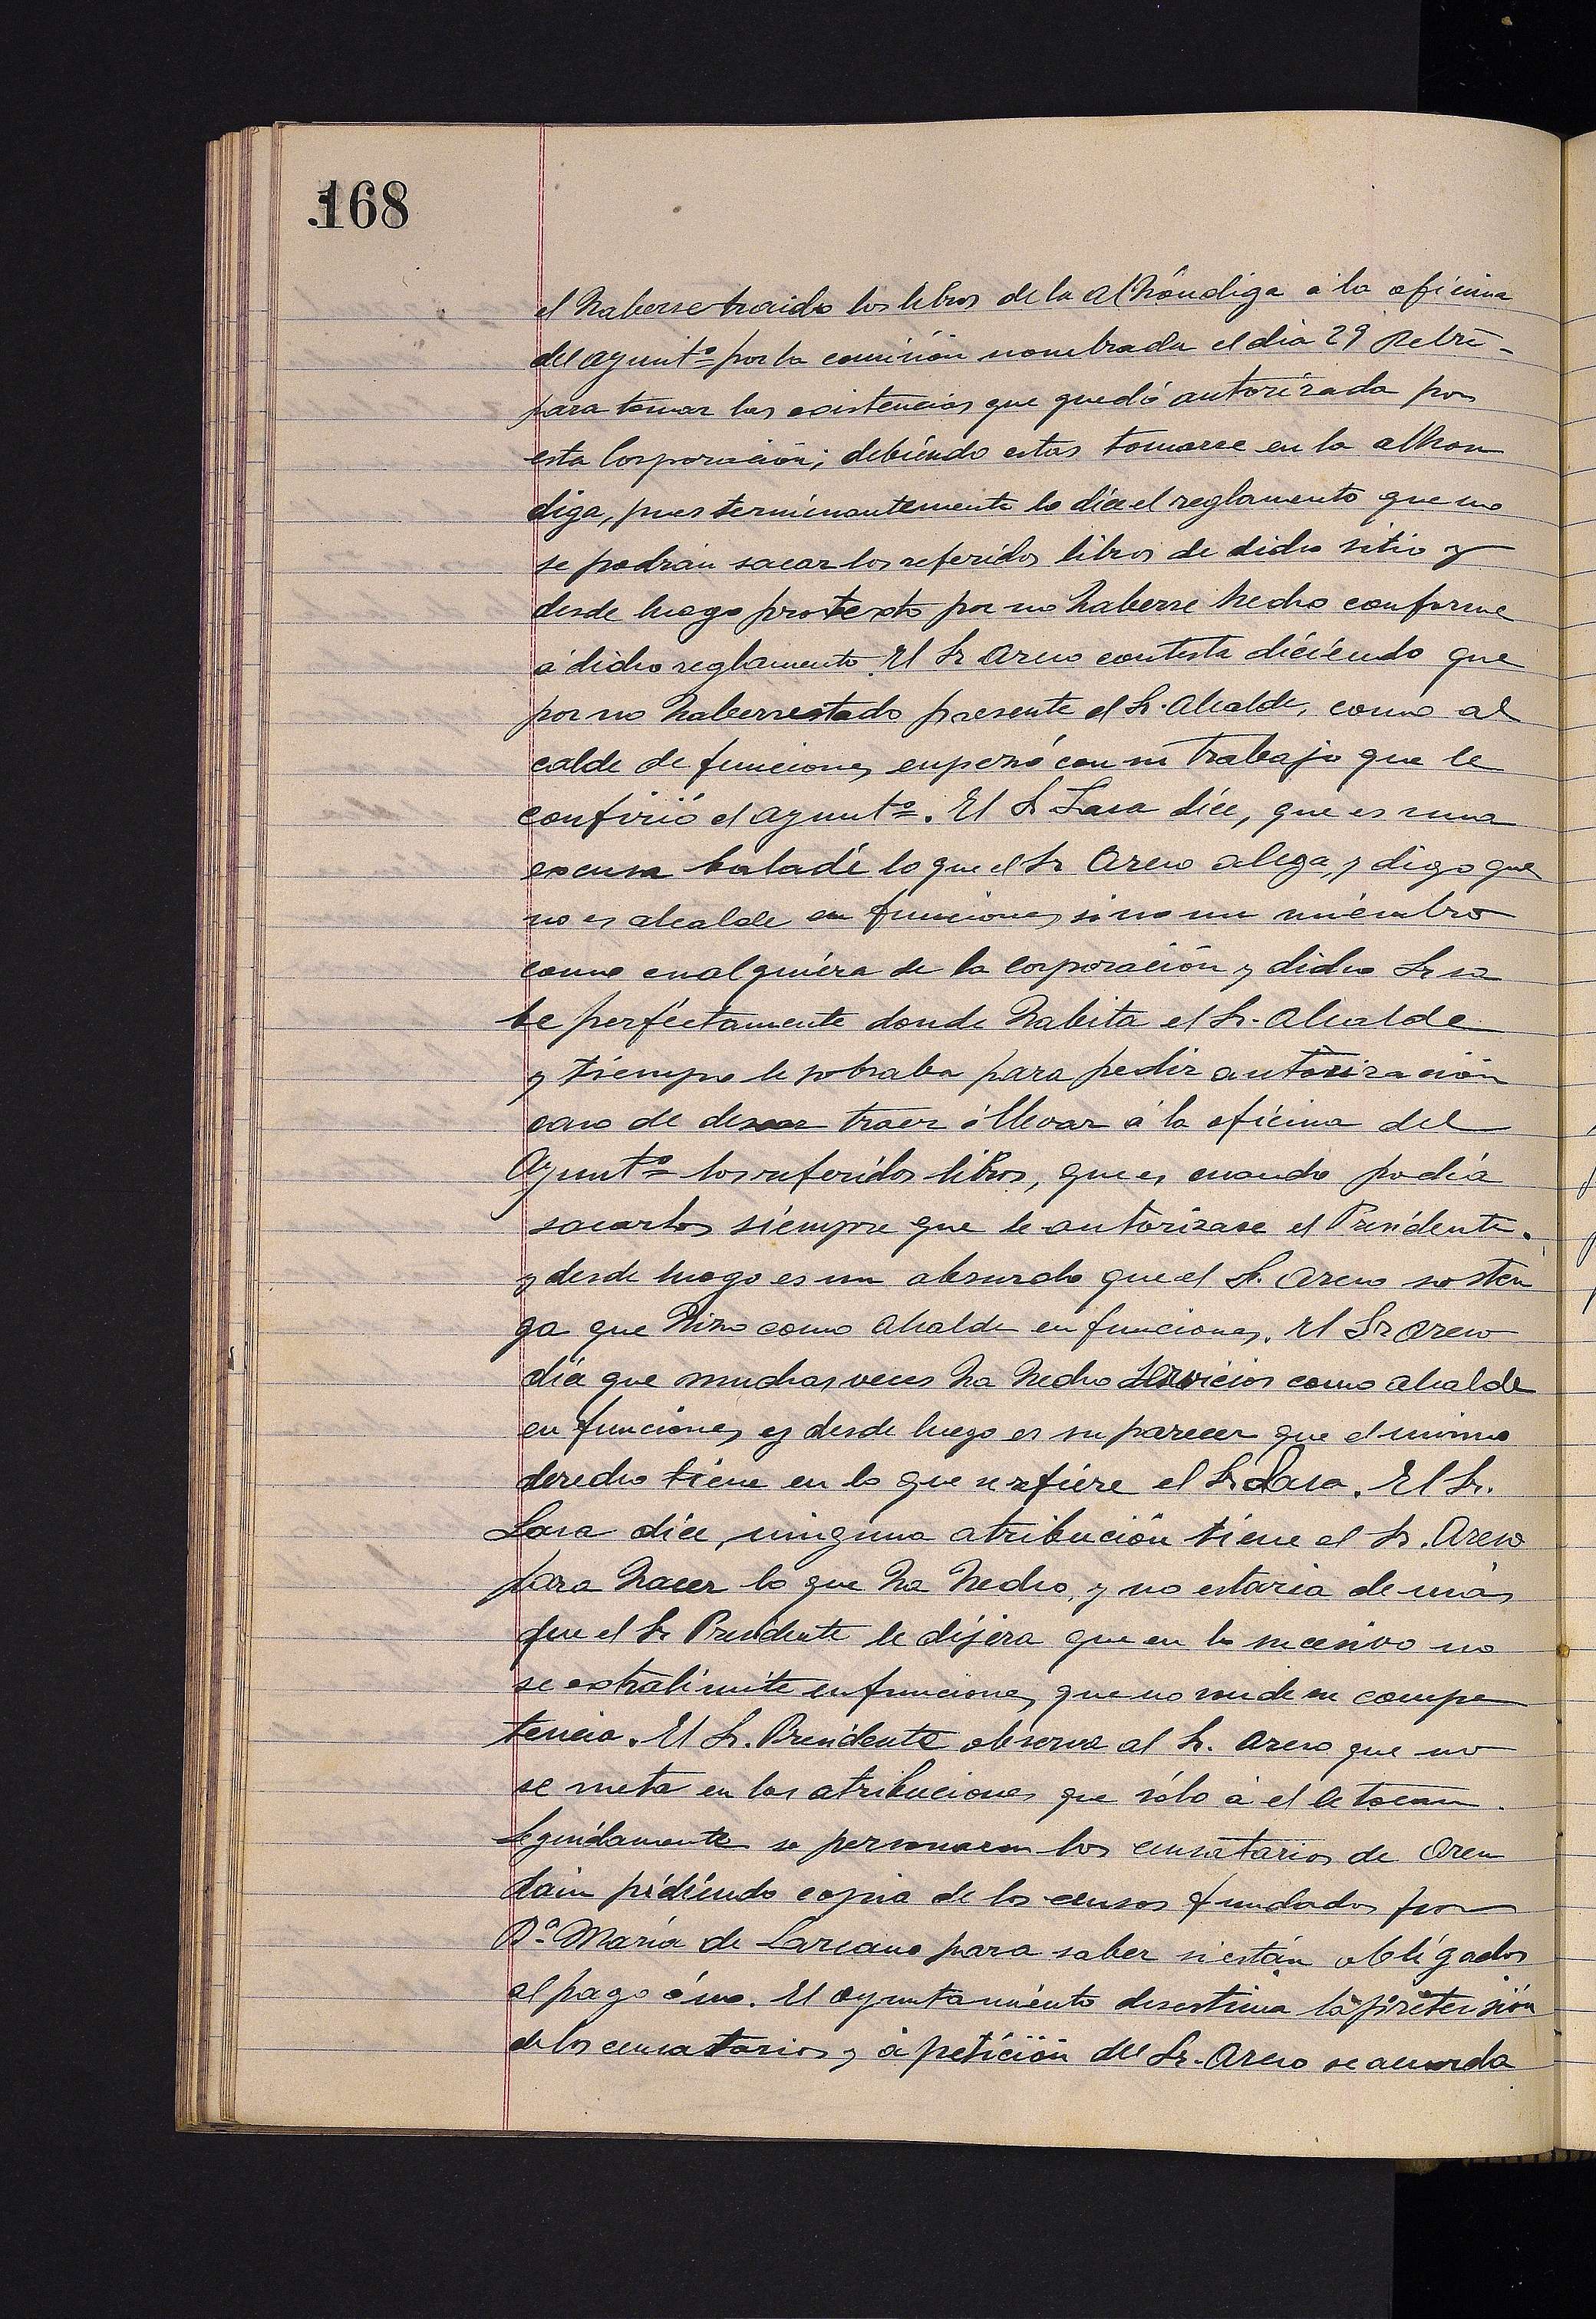 168
el haberse traido los libros de la Alhóndiga á la oficina
del ayuntº por la comisión nombrada el dia 29
para tomar las existencias que quedó autorizada por
esta Corporación; debiéndo estas tomarse en la alhon
diga, pues términantemente lo díce el reglamento que no
se podrán sacar los referidos libros de dicho sitio y
desde luego protexto por no haberse hecho conforme
á dicho reglamento. El Sr Areso contesta dicíendo que
por no haberse estado presente el Sr. Alcalde, como al
calde de funciones, empezó con su trabajo que le
confirió el ayuntº. El Sr Lasa díce, que es una
excusa baladí lo que el Sr Areso alega, y digo que
no es alcalde en funciones, si no un miémbro
como cualquiéra de la Corporación y dicho Sr sa
be perféctamente donde habita el Sr. Alcalde
y tiémpo le sobraba para pedir autorización
caso de desear traer ó llevar á la oficina del
Ayuntº los referidos libros, que es cuando podía
sacarlos siémpre que le autorizase el Presídente.
y desde luego es un absurdo que el Sr. Areso sosten
ga que hizo como Alcalde en funciones. El Sr Areso
díce que muchas veces ha hecho servicios como alcalde
en funciones, y desde luego es su parecer que el mismo
derecho tiéne en lo que se refiére el Sr Lasa. El Sr.
Lasa díce, ninguna atribución tiéne el Sr. Areso
para hacer lo que ha hecho, y no estaria de más
que el Sr Presidente le díjera que en lo sucesivo no
se extralímite en funciones, que no son de su compe
tencia. El Sr. Presídente observa al Sr. Areso que no
se meta en las atribuciones que sólo á el le tocan.
Seguídamente se personaron los censatarios de Oren
dain pídiéndo copia de los censos fundados por
Dª María de Lazcano para saber si están oblígados
al pago ó no. El ayuntamiénto desestima la pretensión
de los censatarios y á petición del Sr. Areso se acuerda